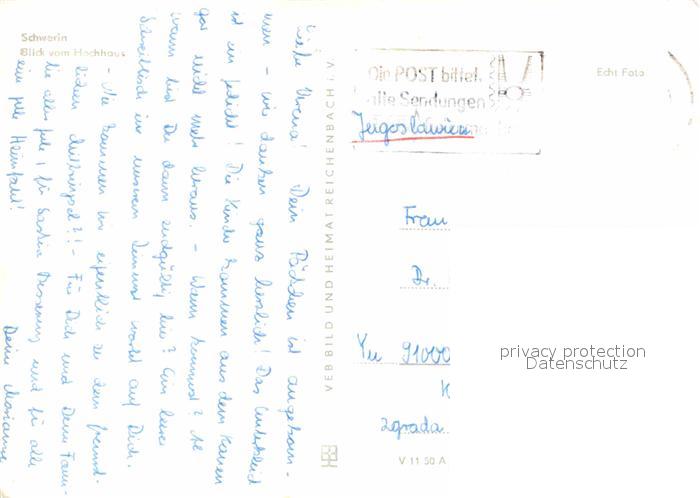 Schwerin
Blick vom Hochhaus
Liebe Verena! Dein Päckchen ist angekom-
men - wir danken ganz herzlich! Das Kinderkleid
ist ein Gedicht! Die Kinder kommen aus dem
gar nicht mehr heraus. - Wann kommst? Ab
wann bist Du dann endgültig hier? Ein leerer
Schreibtisch in unserem Zimmer wartet auf Dich.
- Wie kommen wir eigentlich zu dem freund-
lichen
Für Dich und Deine Fami-
lie alles Gute, für Saskia Besserung und für alle
eine gute Heimfahrt!
Deine Marianne
VEB BILD UND HEIMAT REICHENBACH i. V.
Die POST bittet
alle Sendungen
Echt Foto
Jugoslawien
Frau
Dr.
Yu 91000
zgrada
V 11 50 A
privacy protection
Datenschutz